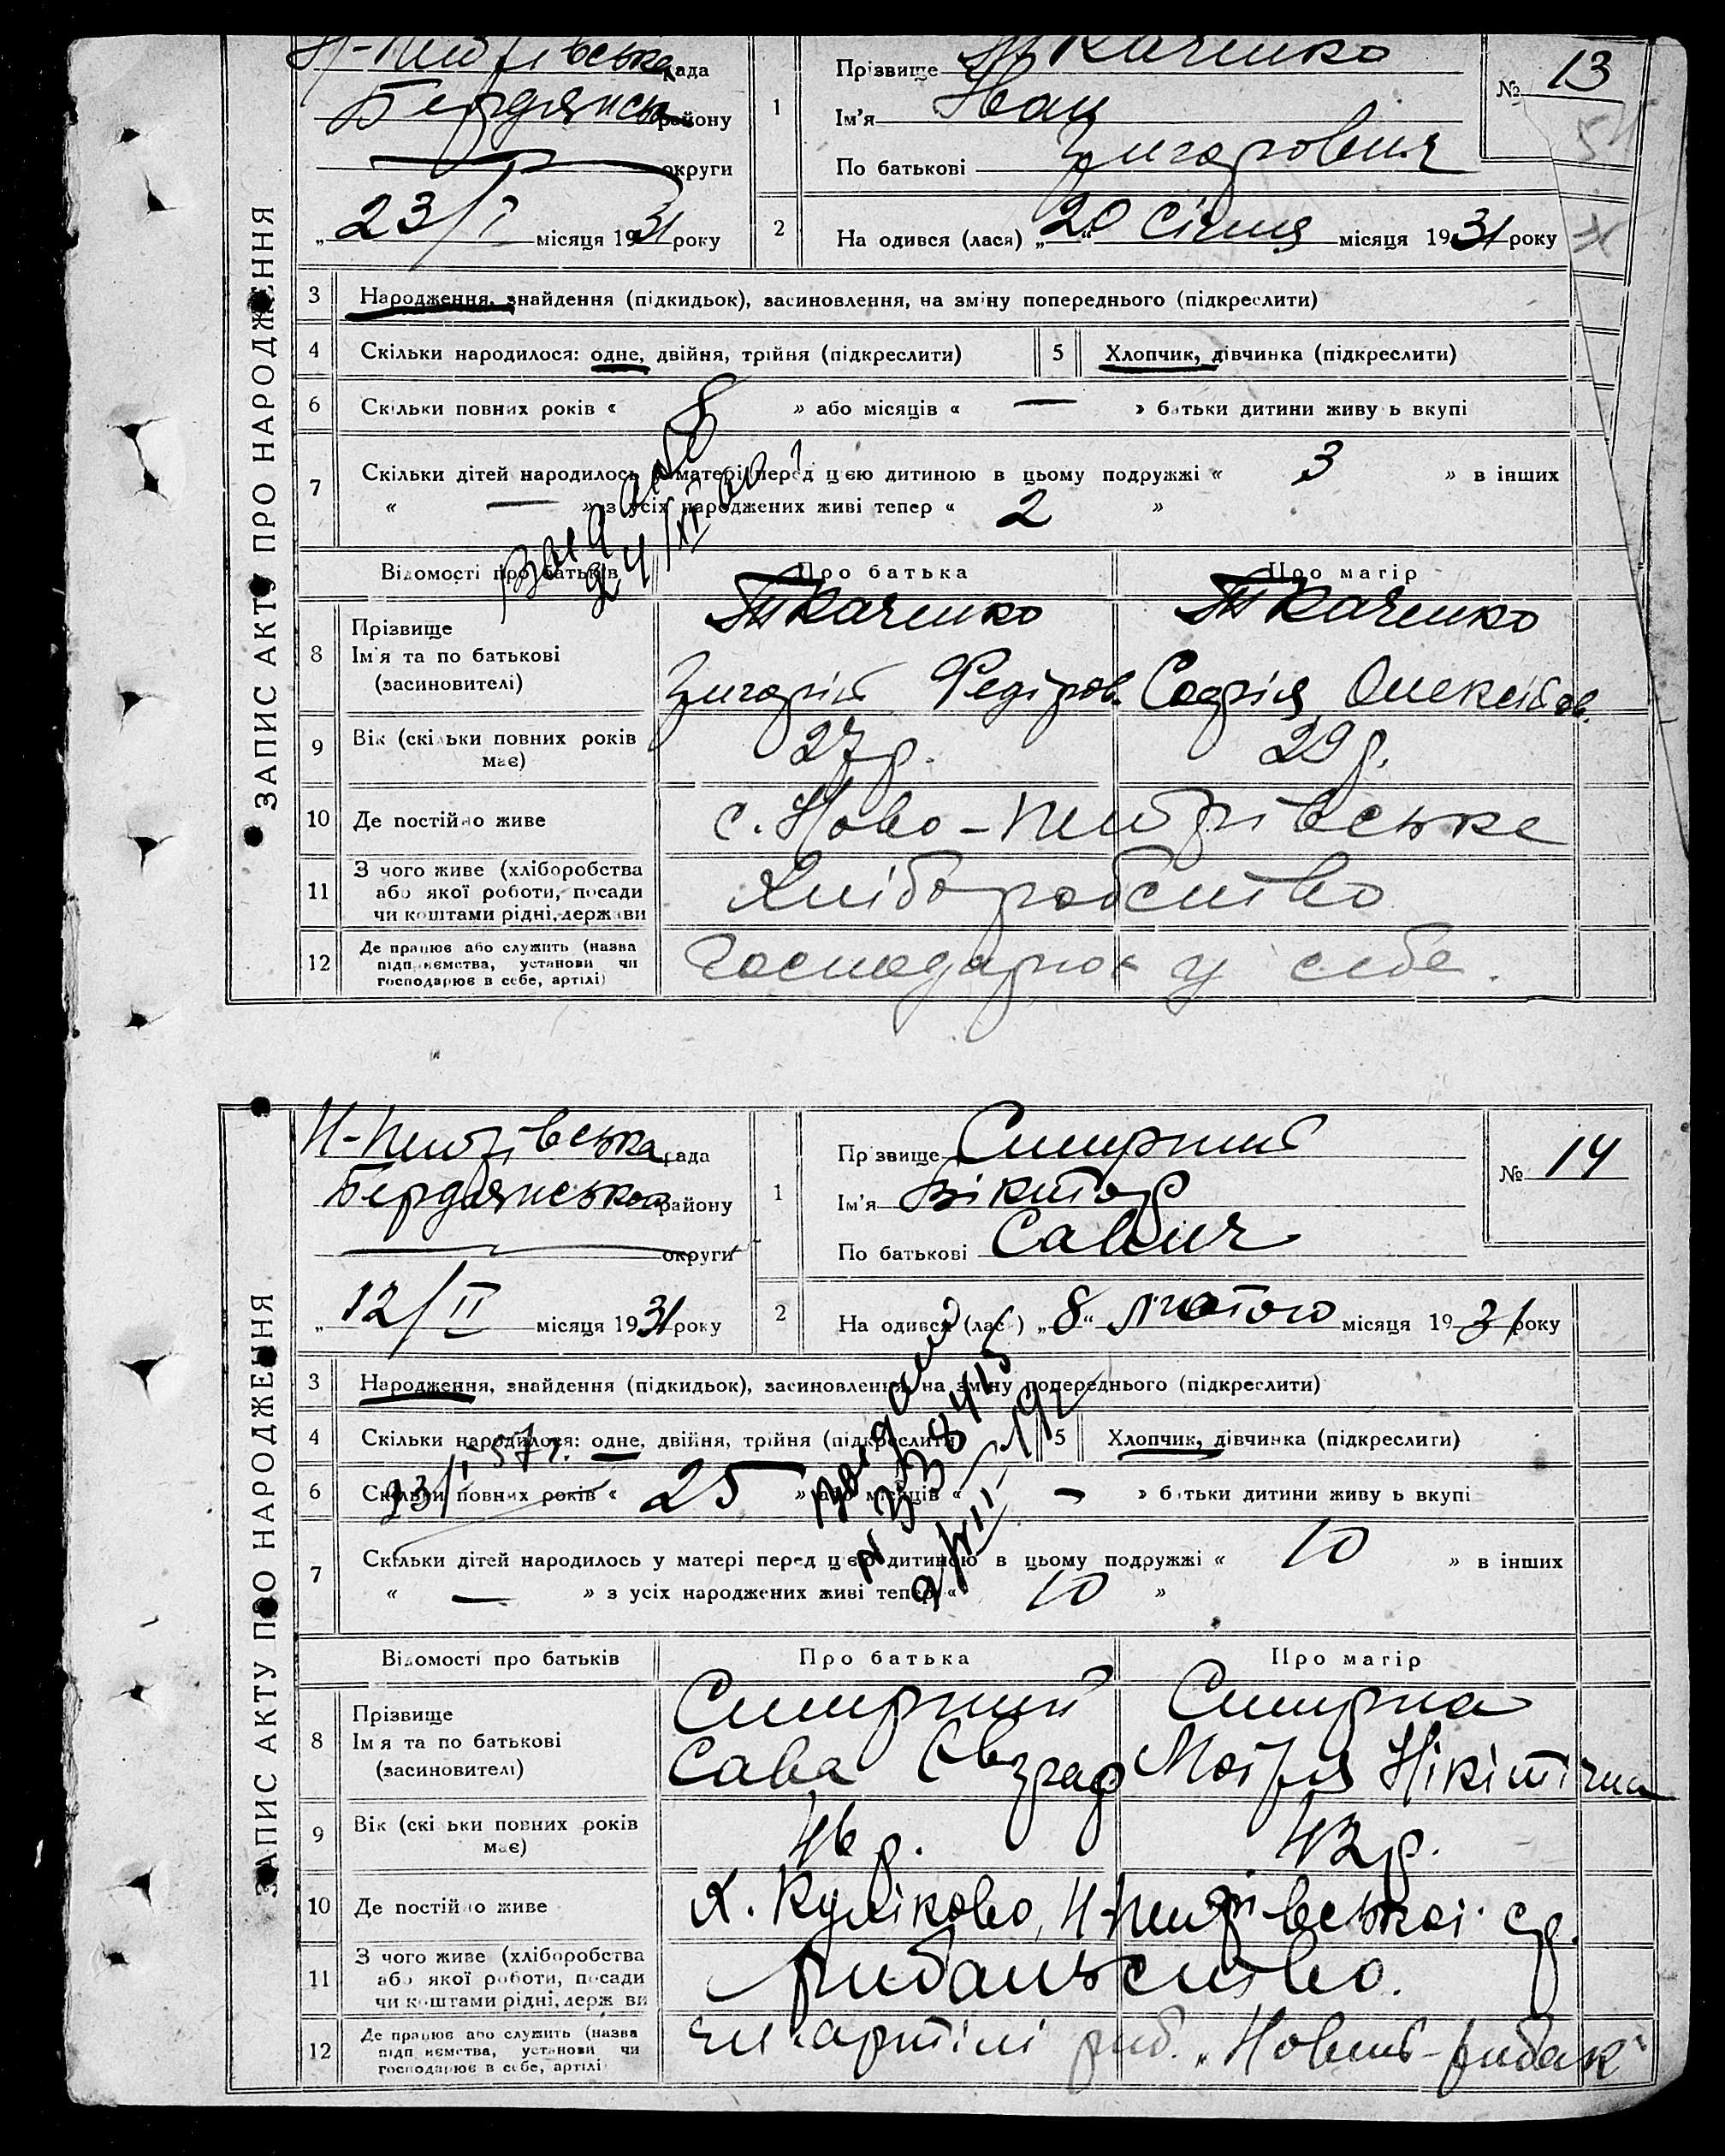 ЗАПИС АКТУ ПРО НАРОДЖЕННЯ
Н-Петрівська рада
Бердянськ району
округи
„23/I місяця 1931 року
1
Прізвище Ткаченко
Ім'я Іван
По батькові Григорович
№ 13
2
На одився (лася) „20" Січня місяця 1931 року
3 Народження, знайдення (підкидьок), засиновлення, на зміну попереднього (підкреслити)
4 Скільки народилося: одне, двійня, трійня (підкреслити)
5 Хлопчик, дівчинка (підкреслити)
6 Скільки повних років « 8 » або місяців « — » батьки дитини живу ь вкупі
7 Скільки дітей народилось у матері перед цією дитиною в цьому подружжі « 3 » в інших
« — » з усіх народжених живі тепер « 2 »
Відомості про батьків
Про батька
Про матір
8 Прізвище
Ім'я та по батькові
(засиновителі)
Ткаченко
Григорій Федіров.
Ткаченко
Софія Олексіїв.
9 Вік (скільки повних років
має)
27 р.
29 р.
10 Де постійно живе
с. Ново-Петрівське
11 З чого живе (хліборобства
або якої роботи, посади
чи коштами рідні, держави
Хліборобство
12 Де працює або служить (назва
підприємства, установи чи
господарює в себе, артілі)
Господарює у себе.
ЗАПИС АКТУ ПРО НАРОДЖЕННЯ
Н-Петрівська рада
Бердянського району
округи
„12/II місяця 1931 року
1
Прізвище Смирний
Ім'я Віктор
По батькові Савич
№ 14
2
На одився (лас ) „8" лютого місяця 1931 року
3 Народження, знайдення (підкидьок), засиновлення, на зміну попереднього (підкреслити)
4 Скільки народилося: одне, двійня, трійня (підкреслити)
5 Хлопчик, дівчинка (підкреслити)
6 Скільки повних років « 25 » або місяців « — » батьки дитини живу ь вкупі
23/I 57 г.
7 Скільки дітей народилось у матері перед цією дитиною в цьому подружжі « 10 » в інших
« — » з усіх народжених живі тепер « 10 »
Відомості про батьків
Про батька
Про матір
8 Прізвище
Ім я та по батькові
(засиновителі)
Смирний
Сава
Смирна
Мотря Нікітічна
9 Вік (скі ьки повних років
має)
46 р.
43 р.
10 Де постійно живе
Х. Куліково, Н-Петрівської ср.
11 З чого живе (хліборобства
або якої роботи, посади
чи коштами рідні, держ ви
рибальство.
12 Де працює або служить (назва
підп иємства, установи чи
господарює в себе, артілі
чл. артілі риб. „Новий-рибак"